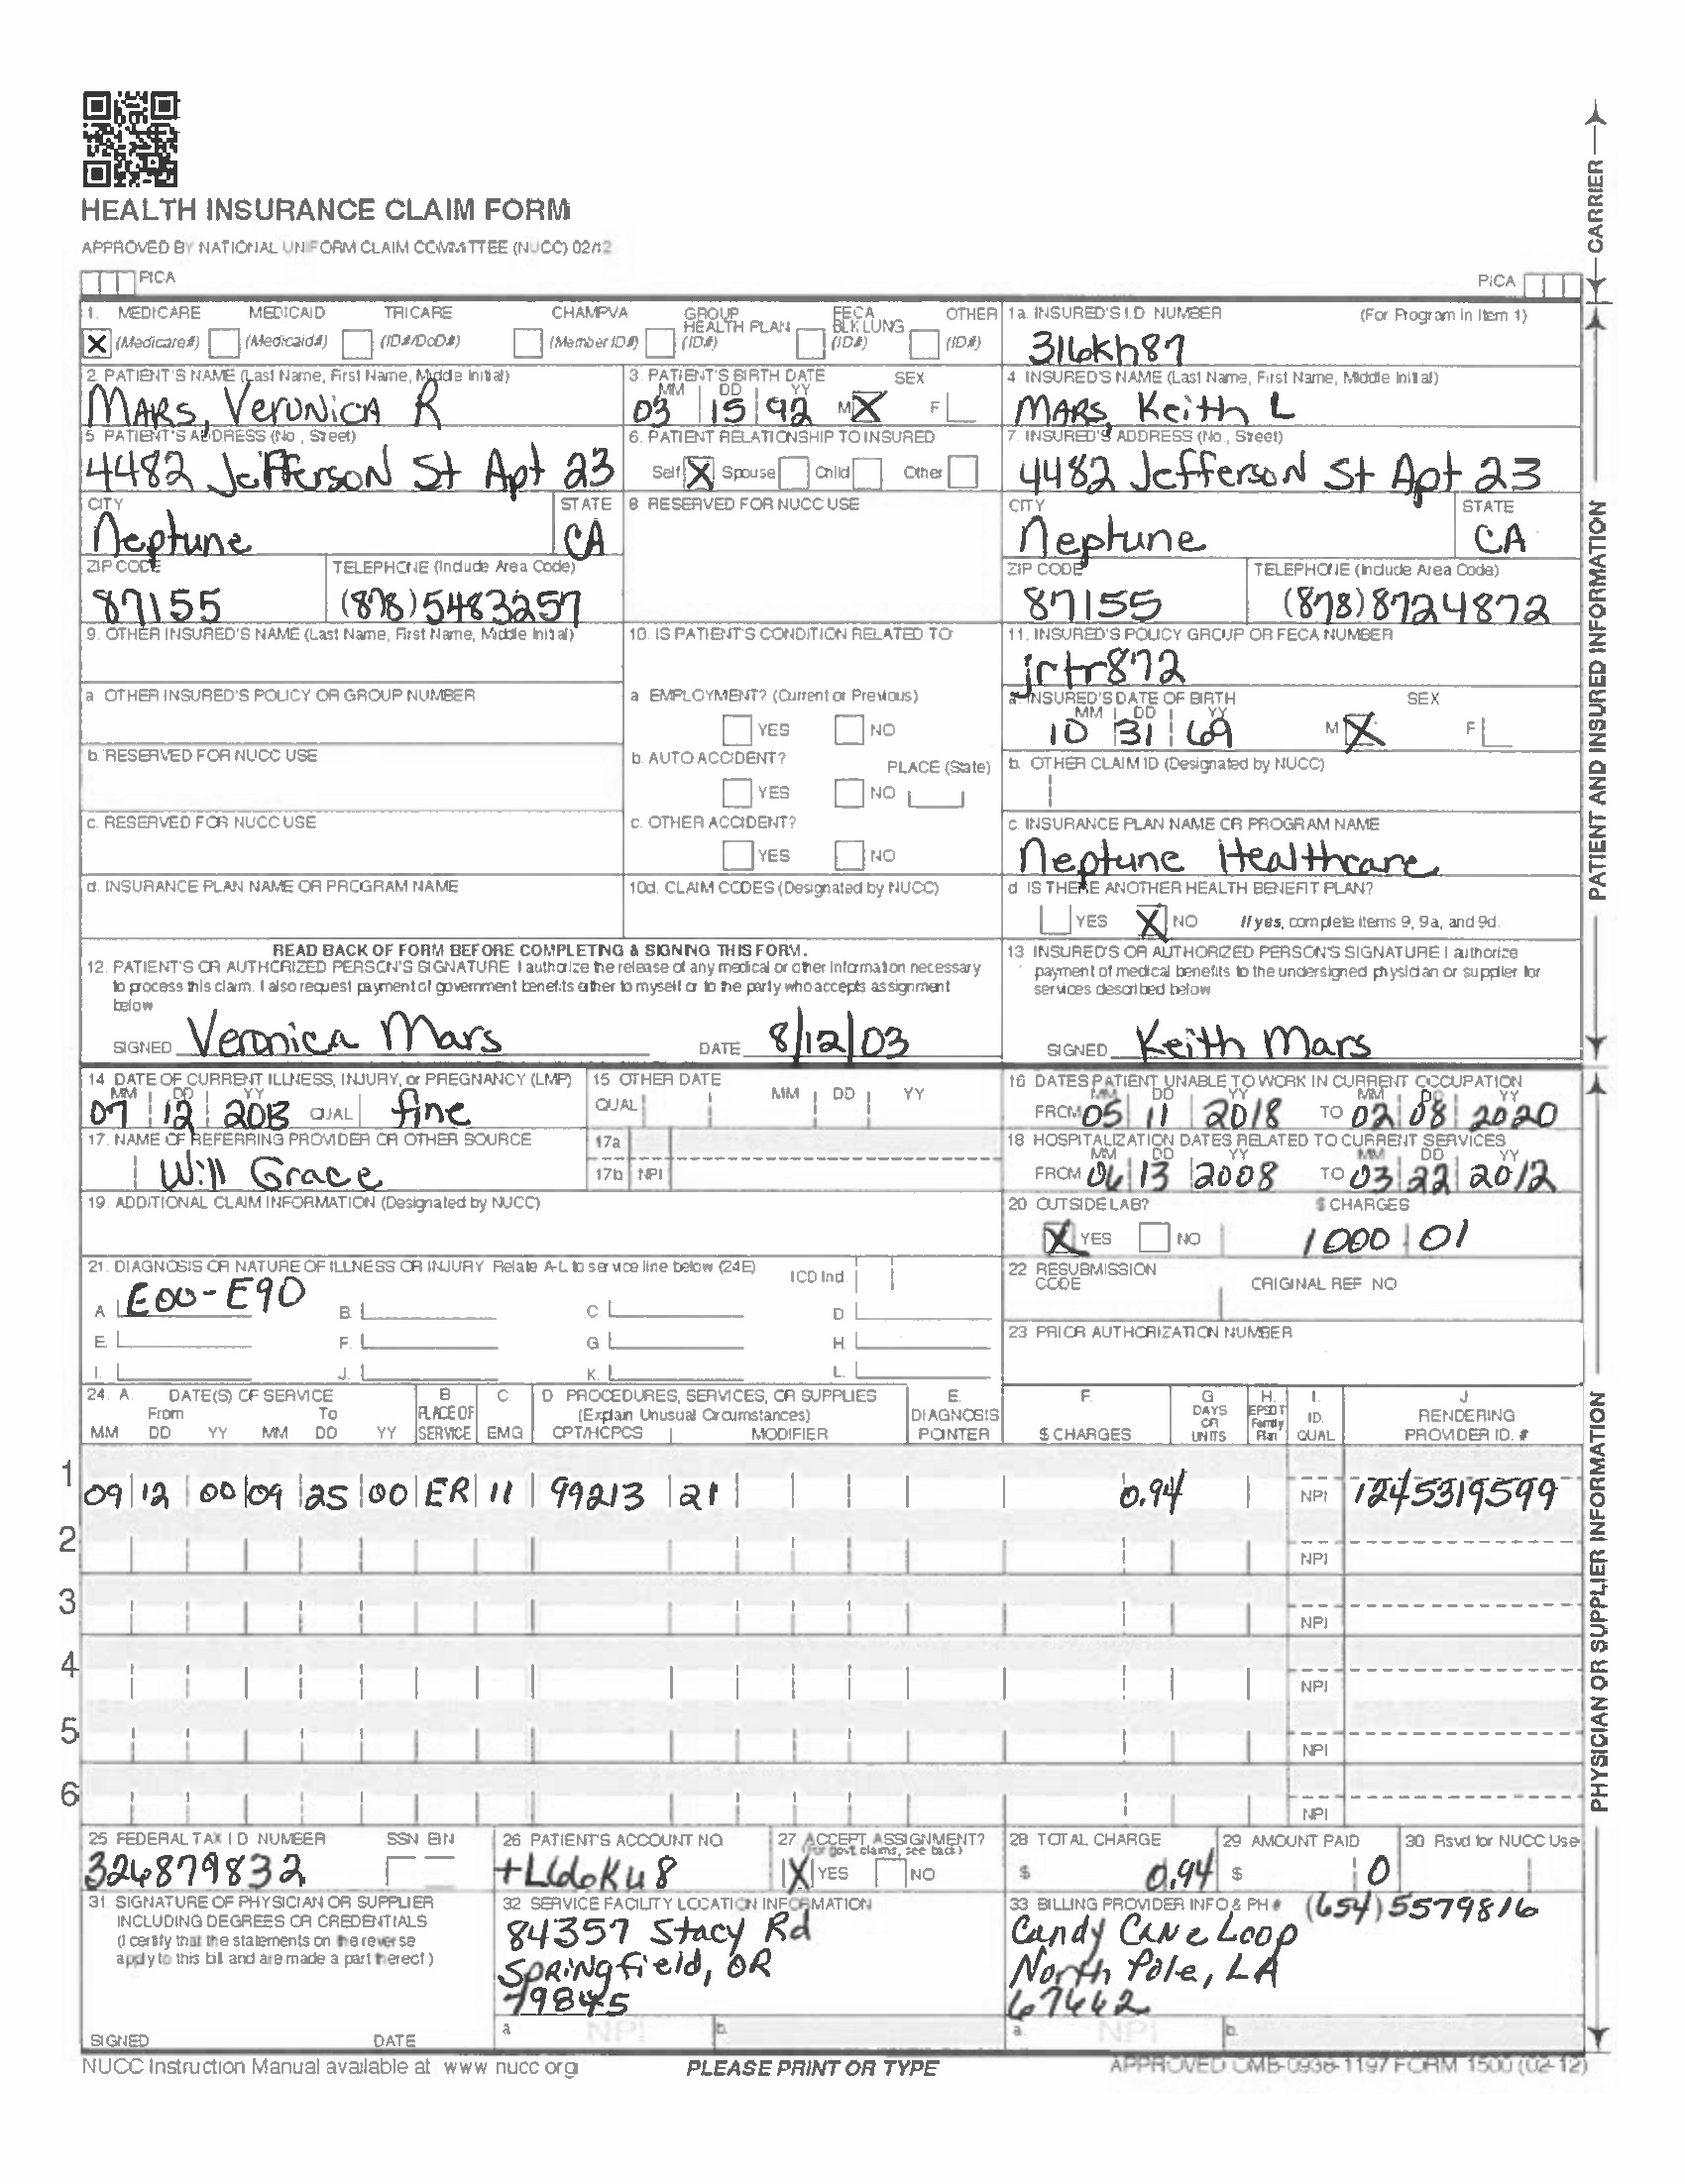 HEALTH INSURANCE CLAIM FORM
APPROVED BY NATIONAL UNIFORM CLAIM COMMITTEE (NUCC) 02/12
PICA
PICA
CARRIER
1. MEDICARE MEDICAID TRICARE CHAMPVA GROUP HEALTH PLAN FECA BLK LUNG OTHER
X (Medicare#) (Medicaid#) (ID#/DoD#) (Member ID#) (ID#) (ID#) (ID#)
1a. INSURED'S I.D. NUMBER (For Program in Item 1)
316kh87
2. PATIENT'S NAME (Last Name, First Name, Middle Initial)
MARS, VERONICA R
3. PATIENT'S BIRTH DATE SEX
MM DD YY
03 15 92 M X F
4. INSURED'S NAME (Last Name, First Name, Middle Initial)
MARS, Keith L
5. PATIENT'S ADDRESS (No., Street)
4482 Jefferson St Apt 23
6. PATIENT RELATIONSHIP TO INSURED
Self X Spouse Child Other
7. INSURED'S ADDRESS (No., Street)
4482 Jefferson St Apt 23
CITY STATE
Neptune CA
8. RESERVED FOR NUCC USE
CITY STATE
Neptune CA
ZIP CODE TELEPHONE (Include Area Code)
87155 (878) 5483257
ZIP CODE TELEPHONE (Include Area Code)
87155 (878) 8724872
9. OTHER INSURED'S NAME (Last Name, First Name, Middle Initial)
10. IS PATIENT'S CONDITION RELATED TO
11. INSURED'S POLICY GROUP OR FECA NUMBER
jrtr872
a. OTHER INSURED'S POLICY OR GROUP NUMBER
a. EMPLOYMENT? (Current or Previous)
YES NO
a. INSURED'S DATE OF BIRTH SEX
MM DD YY
10 31 69 M X F
b. RESERVED FOR NUCC USE
b. AUTO ACCIDENT? PLACE (State)
YES NO
b. OTHER CLAIM ID (Designated by NUCC)
c. RESERVED FOR NUCC USE
c. OTHER ACCIDENT?
YES NO
c. INSURANCE PLAN NAME OR PROGRAM NAME
Neptune Healthcare
d. INSURANCE PLAN NAME OR PROGRAM NAME
10d. CLAIM CODES (Designated by NUCC)
d. IS THERE ANOTHER HEALTH BENEFIT PLAN?
YES X NO If yes, complete items 9, 9a, and 9d.
READ BACK OF FORM BEFORE COMPLETING & SIGNING THIS FORM.
12. PATIENT'S OR AUTHORIZED PERSON'S SIGNATURE I authorize the release of any medical or other information necessary
to process this claim. I also request payment of government benefits either to myself or to the party who accepts assignment
below
SIGNED Veronica Mars DATE 8/12/03
13. INSURED'S OR AUTHORIZED PERSON'S SIGNATURE I authorize
payment of medical benefits to the undersigned physician or supplier for
services described below
SIGNED Keith Mars
PATIENT AND INSURED INFORMATION
14. DATE OF CURRENT ILLNESS, INJURY, or PREGNANCY (LMP)
MM DD YY
07 12 2013 QUAL fine
15. OTHER DATE
QUAL MM DD YY
16. DATES PATIENT UNABLE TO WORK IN CURRENT OCCUPATION
MM DD YY MM DD YY
FROM 05 11 2018 TO 02 08 2020
17. NAME OF REFERRING PROVIDER OR OTHER SOURCE
Will Grace
17a
17b NPI
18. HOSPITALIZATION DATES RELATED TO CURRENT SERVICES
MM DD YY MM DD YY
FROM 06 13 2008 TO 03 22 2012
19. ADDITIONAL CLAIM INFORMATION (Designated by NUCC)
20. OUTSIDE LAB? $ CHARGES
X YES NO 1000 01
21. DIAGNOSIS OR NATURE OF ILLNESS OR INJURY Relate A-L to service line below (24E) ICD Ind.
A. E00-E90 B. C. D.
E. F. G. H.
I. J. K. L.
22. RESUBMISSION CODE ORIGINAL REF. NO.
23. PRIOR AUTHORIZATION NUMBER
24. A. DATE(S) OF SERVICE B. C. D. PROCEDURES, SERVICES, OR SUPPLIES E. F. G. H. I. J.
From To PLACE OF (Explain Unusual Circumstances) DIAGNOSIS DAYS OR EPSDT Family ID. RENDERING
MM DD YY MM DD YY SERVICE EMG CPT/HCPCS MODIFIER POINTER $ CHARGES UNITS Plan QUAL. PROVIDER ID. #
1 09 12 00 09 25 00 ER 11 99213 21 0.94 NPI 1245319599
2 NPI
3 NPI
4 NPI
5 NPI
6 NPI
PHYSICIAN OR SUPPLIER INFORMATION
25. FEDERAL TAX I.D. NUMBER SSN EIN
326879832
26. PATIENT'S ACCOUNT NO.
27. ACCEPT ASSIGNMENT?
(For govt. claims, see back)
X YES NO
28. TOTAL CHARGE
$ 0.94
29. AMOUNT PAID
$ 0
30. Rsvd for NUCC Use
31. SIGNATURE OF PHYSICIAN OR SUPPLIER
INCLUDING DEGREES OR CREDENTIALS
(I certify that the statements on the reverse
apply to this bill and are made a part thereof.)
SIGNED DATE
32. SERVICE FACILITY LOCATION INFORMATION
84357 Stacy Rd
Springfield, OR
79845
a. NPI b.
33. BILLING PROVIDER INFO & PH # (654) 5579816
Candy Cane Loop
North Pole, LA
67662
a. NPI b.
NUCC Instruction Manual available at: www.nucc.org
PLEASE PRINT OR TYPE
APPROVED OMB-0938-1197 FORM 1500 (02-12)